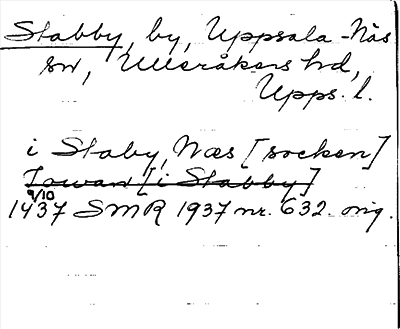 Stabby, by, Uppsala-Näs
sn, Ulleråkers hd,
Upps. l.
i Staby, Næs [socken]
Iowan [i Stabby]
9/10
1437 SMR 1937 nr. 632. orig.